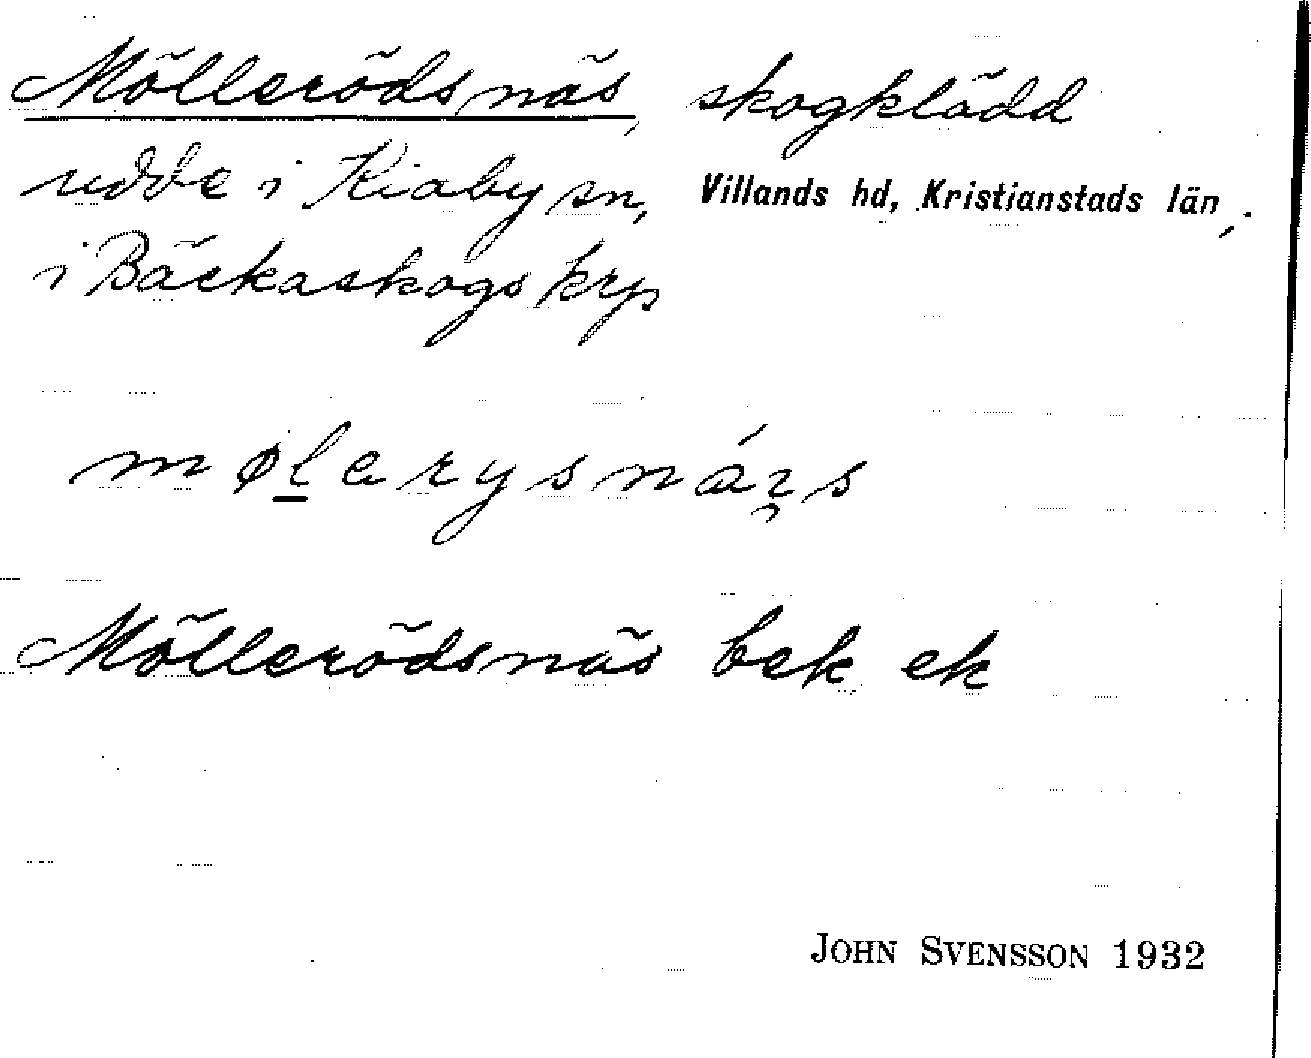 Möllerödsnäs, skogklädd
udde i Kiaby sn, Villands hd, Kristianstads län,
i Bäckaskogs krp
Möllerödsnäs bek ek
JOHN SVENSSON 1932